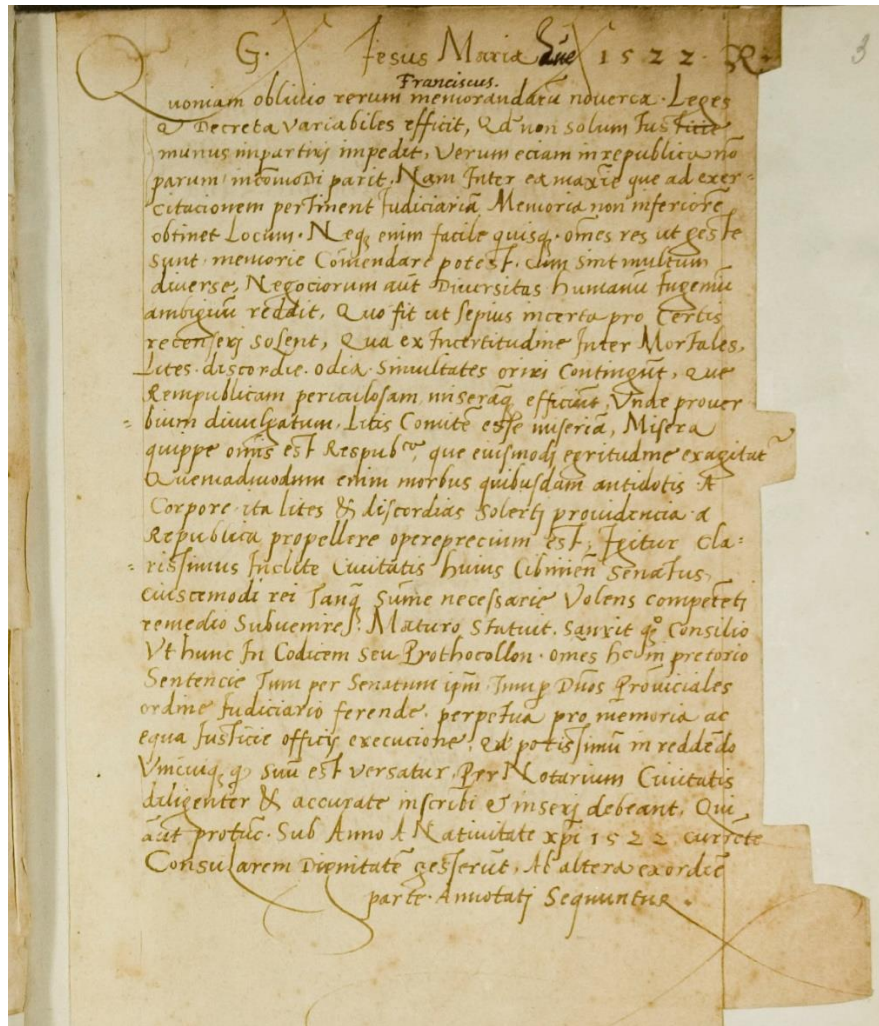 G. Jesus Maria 1522. R.
3
Franciscus.
Quoniam oblivio rerum memorandarū noverca. Leges
& Decreta variabiles efficit, Qd non solum Justicie
munus impartirj impedit, Verum eciam in republica nō
parum incōmodi parit, Nam Inter ea maxīe que ad exer-
citacionem pertinent Judiciariā Memoria non inferiorē
obtinet Locum. Neq enim facile quisq. om̄es res ut geste
sunt memorie Cōmendare potest. cum sint multum
diverse, Negociorum aūt Diversitas humanū Ingeniū
ambiguū reddit, Quo fit ut sepius incerta pro Certis
recenserj solent, Qua ex Incertitudine Inter Mortales,
Lites. discordie. odia. Simultates oriri Contingūt, que
Rempublicam periculosam miserāq efficiūt, Unde prover
= bium divulgatum. Litis Comitē esse miseriā, Misera
quippe om̄is est Respubca, que eiusmodj egritudine exagitat
Quemadmodum enim morbus quibusdam antidotis A
Corpore. ita lites & discordias Solertj providencia a
Republica propellere opereprecium est, Igitur Cla:
= rissimus Inclite Civitatis huius Cibinien̄ Senatus,
cuiuscemodi rei Tanq̄ Sūme necessarie Volens competētj
remedio Subvenire, Maturo Statuit. Sanxit qȝ Consilio
Ut hunc In Codicem Seu Prothocollon. om̄es hc in pretorio
Sentencie Tum per Senatum ipm̄. Tum p Dn̄os Provīciales
ordine Judiciario ferende. perpetua pro memoria ac
equa Justicie officij execucione, Qd potissimū in reddēdo
Unicuiq qd suū est versatur, Per Notarium Civitatis
diligenter & accurate inscribi & inserj debeant, Qui
aūt protūc. Sub Anno A Nativitate xpi 1522 currēte
Consularem Dignitatē gesserūt. Ab altera ex ordine
parte. Annotatj Sequuntur.